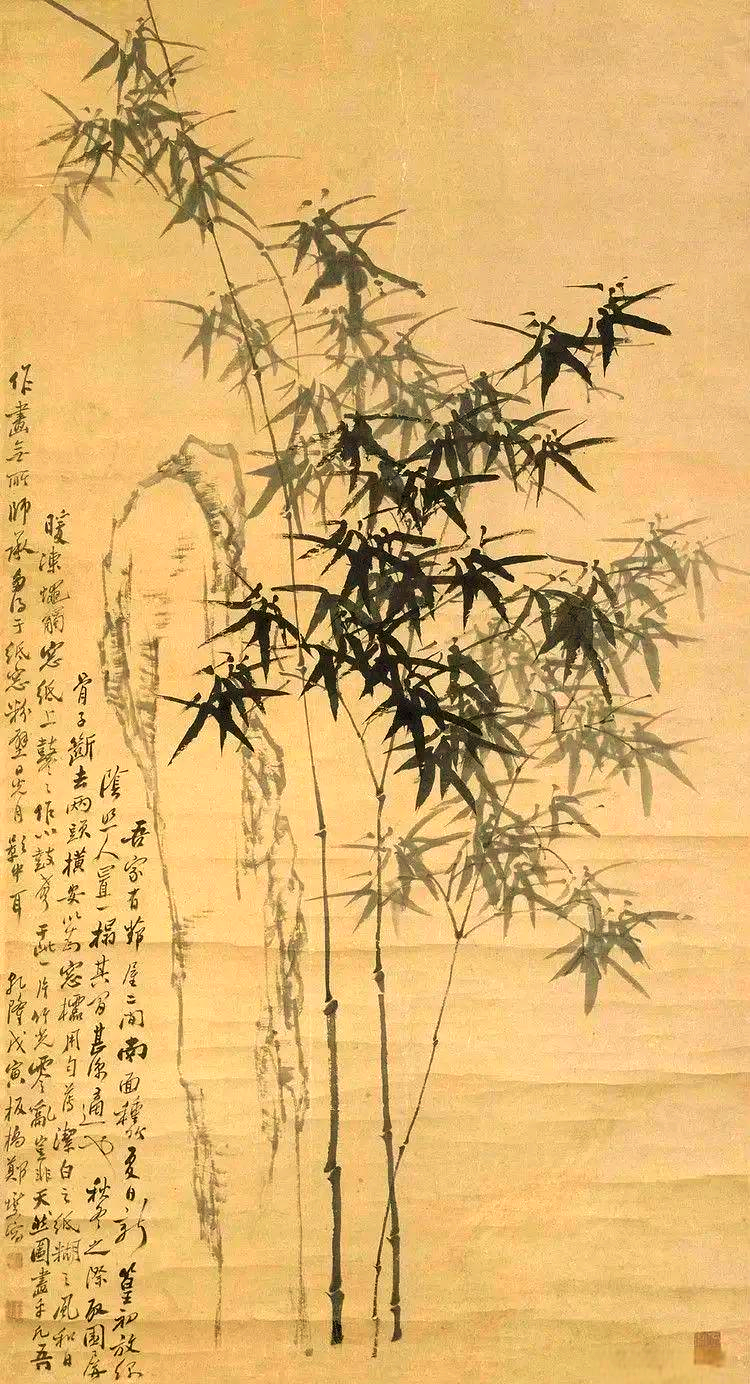 吾家有茆屋二間南面種竹夏日新篁初放綠
陰照人置一榻其間甚涼適也秋冬之際取圍屏
骨子斷去兩頭橫安以為窓櫺用勻薄潔白之紙糊之風和日
暖凍蠅觸窓紙上鼕〻作小鼓聲于此一片竹光零亂豈非天然圖畫乎凡吾
作畫無所師承多得于紙窓粉壁日光月影中耳 乾隆戊寅板橋鄭燮寫